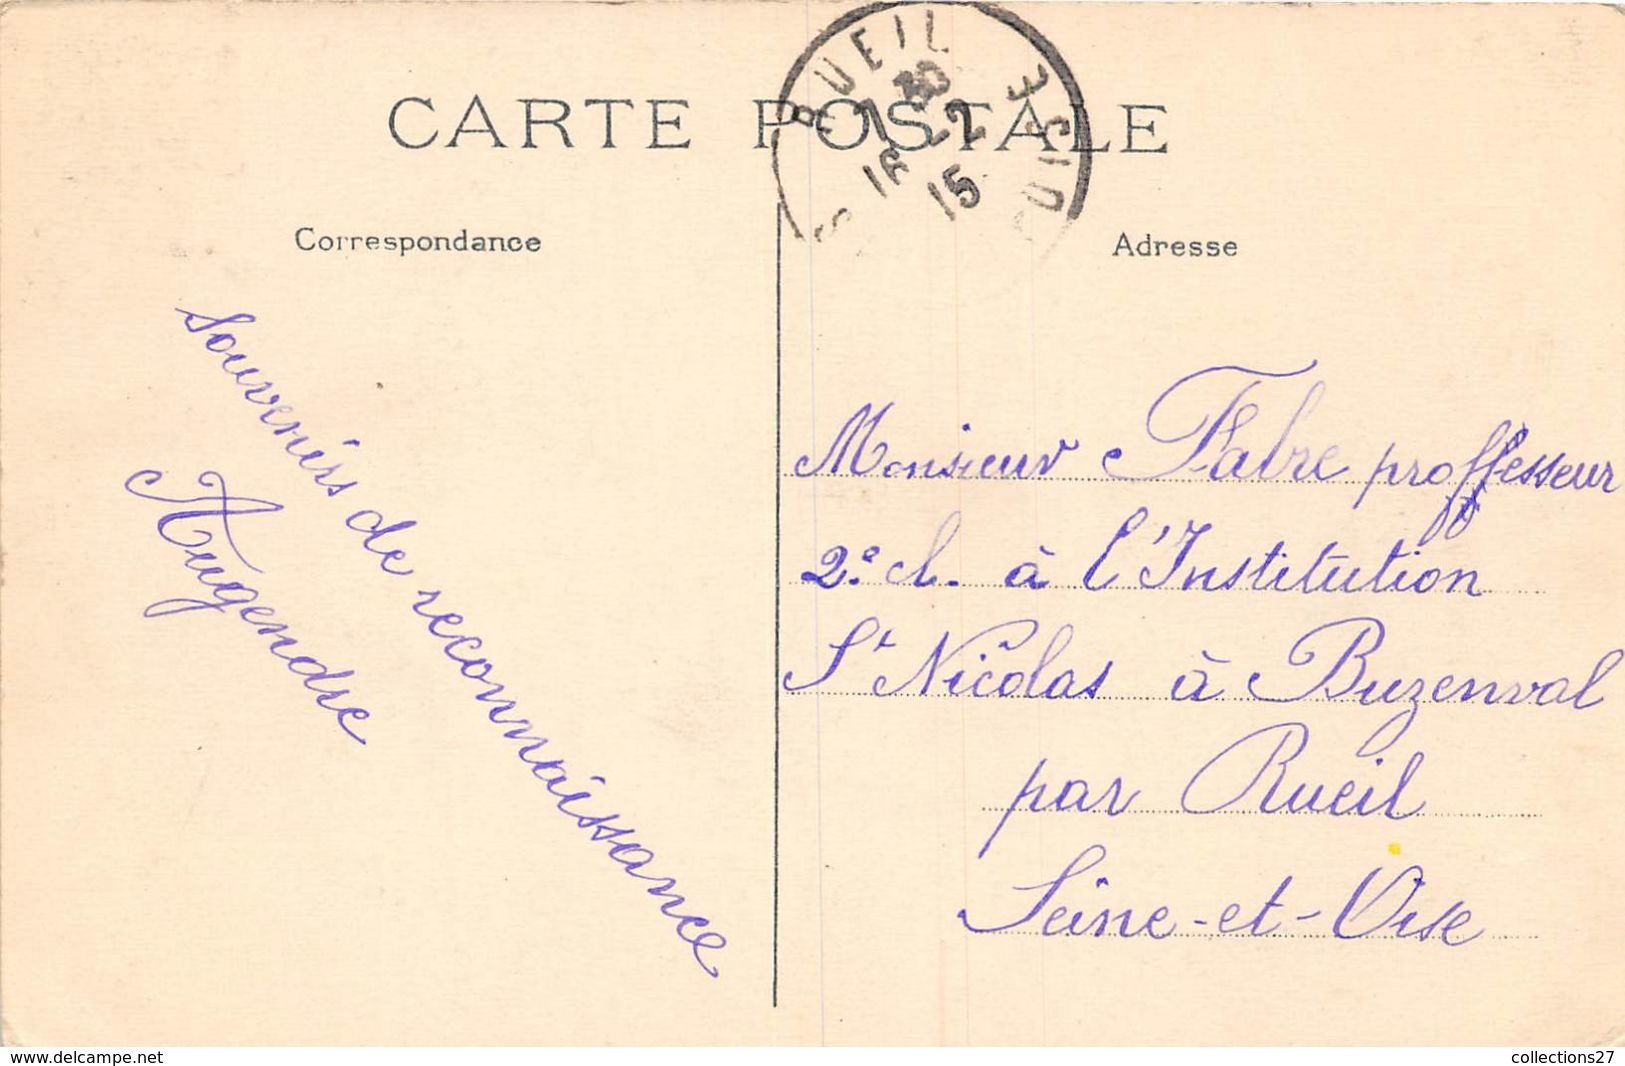 CARTE POSTALE
RUEIL
7 30
16 -2
15
S OISE
Correspondance
Adresse
Souvenirs de reconnaissance
Augendre
Monsieur Fabre proffesseur
2e cl. à l'Institution
St Nicolas à Buzenval
par Rueil
Seine-et-Oise
www.delcampe.net
collections27